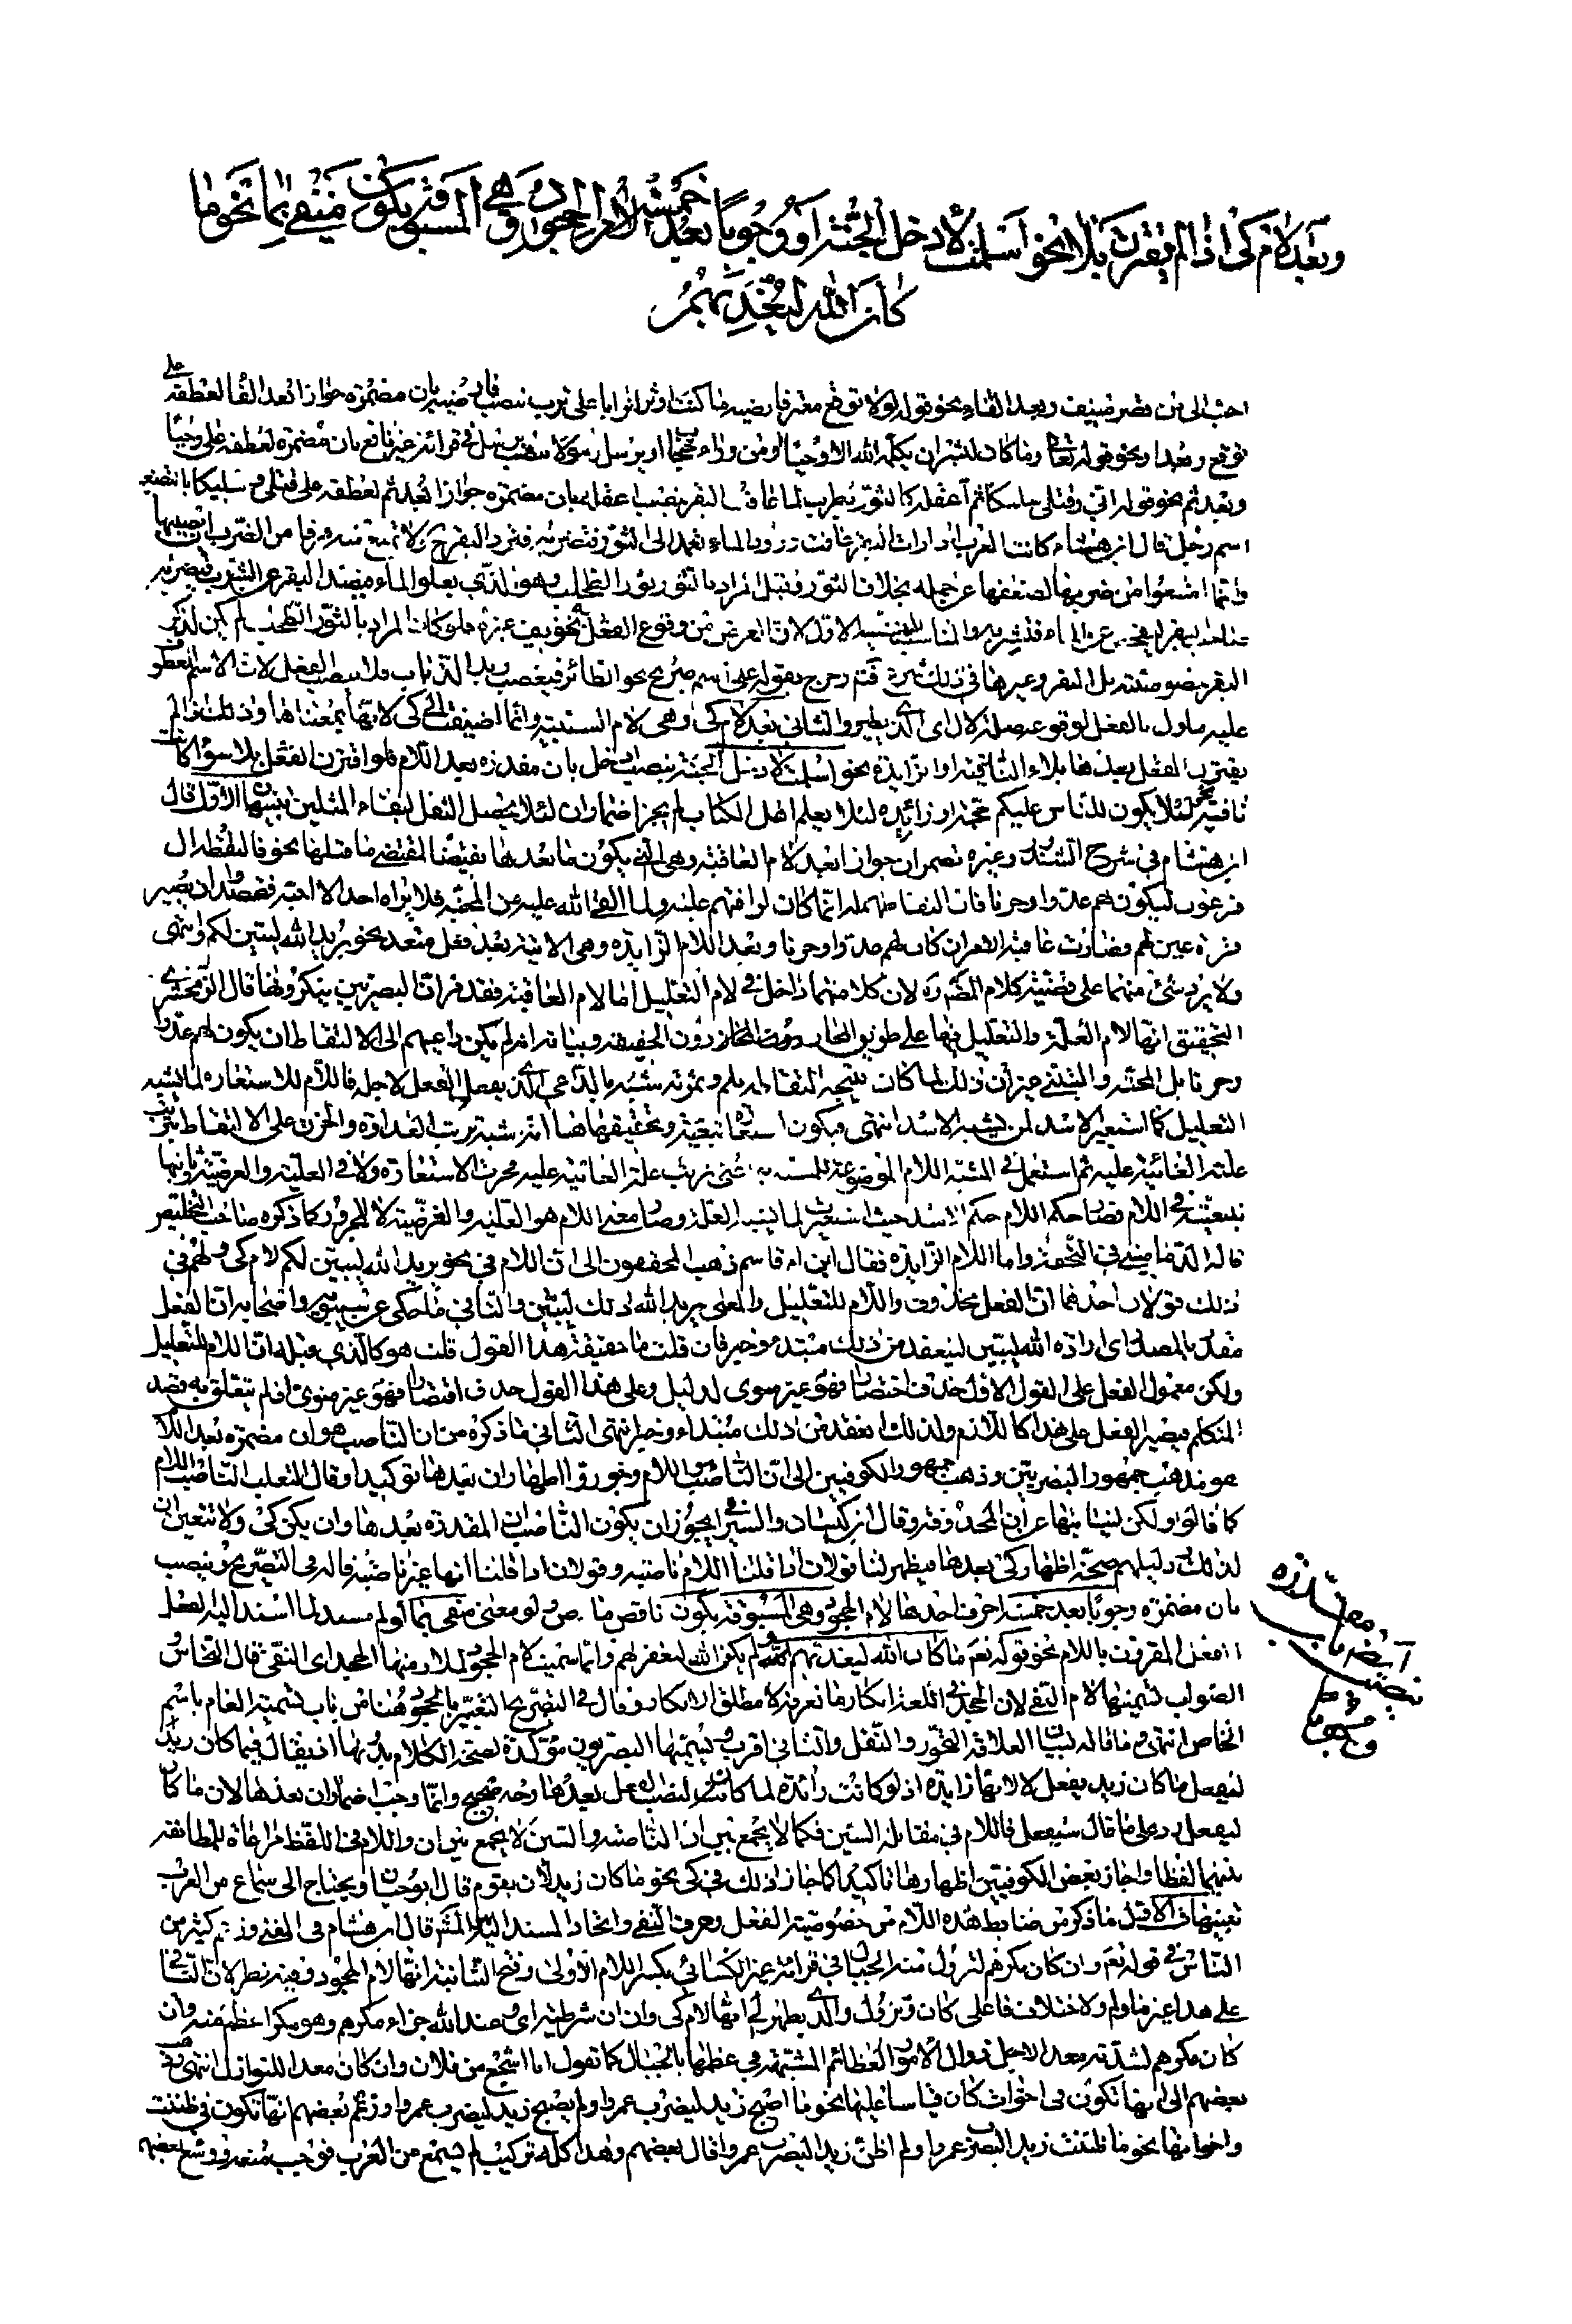 وبعد لام كي اذا لم يقترن بلا نحو اسلمت لادخل الجنة او وجوبا بعد خمسة لام الجحود وهي المسبوقة بكون منفي بما نحو ما
كان الله ليعذبهم
احب الي من قصر منيف وبعد الفاء نحو قوله لولا توقع معتر فارضيه ما كنت اوثر اترابا على ترب بنصب فارضيه بان مضمرة جوازا بعد الفا لعطفه على
توقع وبعد او نحو قوله تعالى وما كان لبشر ان يكلمه الله الا وحيا او من وراء حجاب او يرسل رسولا بنصب يرسل في قراءة غير نافع بان مضمرة لعطفه على وحيا
وبعد ثم نحو قوله اني وقتلي سليكا ثم اعقله كالثور يضرب لما عافت البقر بنصب اعقله بان مضمرة جوازا بعد ثم لعطفه على قتلي وسليكا بالتصغير
اسم رجل قال ابن هشام كانت العرب اذا رات البقر عافت ورود الماء تعمد الى الثور فتضربه فترد البقر ح ولا تمتنع منه فرقا من الضرب ان يصيبها
وانما امتنعوا من ضربها لضعفها عن حمله بخلاف الثور وقيل المراد بالثور ثور الطحلب وهو الذي يعلو الماء فيصد البقر عن الشرب فيضربه
البقر خصوصية بل البقر وغيرها في ذلك شرع
عليه ماول بالفعل لوقوعه صلة لال اي الذي يطير والثاني بعد لام كي وهي لام السببية وانما اضيفت الى كي لانها بمعناها وذلك اذا لم
يقترن الفعل بعدها بلاء النافية او الزايدة نحو اسلمت لادخل الجنة بنصب ادخل بان مقدرة بعد اللام فلو اقترن الفعل بلا سواء كانت
نافية نحو لئلا يكون للناس عليكم حجة او زائدة لئلا يعلم اهل الكتاب لم يجز اضمار ان لئلا يحصل الثقل بلقاء المثلين تنبيهان الاول قال
ابن هشام في شرح الشذور وغيره تضمر ان جوازا بعد لام العاقبة وهي التي يكون ما بعدها نقيضا لمقتضى ما قبلها نحو فالتقطه ال
فرعون ليكون لهم عدوا وحزنا فان التقاطهم له انما كان لرافتهم عليه ولما القى الله عليه من المحبة فلا يراه احد الا احبه فقصدوا ان يصير
قرة عين لهم فصارت عاقبة الامر ان كان لهم عدوا وحزنا وبعد اللام الزايدة وهي الاتية بعد فعل متعد نحو يريد الله ليبين لكم وانتهى
ولا يرد شئ منهما على قضية كلام المص لان كلا منهما داخل في لام التعليل اما لام العاقبة فقد قرر ان البصريين ينكرونها قال الزمخشري
التحقيق انها لام العلة والتعليل فيها على طريق المجاز دون الحقيقة وبيانه انه لم يكن داعيهم الى الالتقاط ان يكون لهم عدوا
وحزنا بل المحبة والتبني غير ان ذلك لما كان نتيجة التقاطهم له وثمرته شبه بالداعي الذي يفعل الفعل لاجله فاللام للاستعارة لما يشبه
التعليل كما استعير الاسد لمن يشبه الاسد انتهى فيكون استعارة تبعية وتحقيقها هنا انه شبه ترتب العداوة والحزن على الالتقاط بترتب
علته الغائية عليه ثم استعمل في المشبه اللام الموضوعة للمشبه به اعني ترتب علة الغائية عليه فجرت الاستعارة اولا في العلية والغرضية وثانيا
بتبعيته في اللام فصار حكم اللام حكم الاسد حيث استعيرت لما يشبه العلة وصار معنى اللام هو العلية والغرضية لا المجرور كما ذكره صاحب التلخيص
قاله الدماميني في التحفة واما اللام الزايدة فقال ابن ام قاسم ذهب المحققون الى ان اللام في نحو يريد الله ليبين لكم لام كي ولهم في
ذلك قولان احدهما ان الفعل محذوف واللام للتعليل والمعنى يريد الله ذلك ليبين والثاني ما حكى عن سيبويه واصحابه ان الفعل
مقدر بالمصدر اي ارادة الله ليبين لينعقد من ذلك مبتدء وخبر فان قلت ما حقيقة هذا القول قلت هو كالذي قبله ان اللام للتعليل
ولكن مفعول الفعل على القول الاول حذف اختصارا فهو غير منوي لدليل وعلى هذا القول حذف اقتصارا فهو غير منوي اذ لم يتعلق به قصد
المتكلم فيصير الفعل على هذا كاللازم ولذلك انعقد من ذلك مبتداء وخبر انتهى الثاني ما ذكره من ان الناصب هو ان مضمرة بعد اللام
هو مذهب جمهور البصريين وذهب جمهور الكوفيين الى ان الناصب اللام وجوزوا اظهار ان بعدها توكيدا وقال ثعلب الناصب اللام
كما قالوا ولكن لنيابتها عن ان المحذوفة وقال ابن كيسان والسيرافي يجوز ان يكون الناصب ان المقدرة بعدها وان يكن كي ولا تتعين ان
لذلك ودليلهم صحة اظهار كي بعدها فيظهر لنا قولان اذا قلنا اللام ناصبة وقولان اذا قلنا انها غير ناصبة قاله في التصريح وينصب
بان مضمرة وجوبا بعد خمسة احرف احدها لام الجحود وهي المسبوقة بكون ناقص ماض ولو معنى منفي بما او لم مسند لما اسند اليه الفعل
الفعل المقرون باللام نحو قوله تع ما كان الله ليعذبهم لم يكن الله ليغفر لهم وانما سميت لام الجحود لملازمتها الجحد اي النفي قال النحاس و
الصواب تسميتها لام النفي لان الجحد في اللغة انكار ما تعرفه لا مطلق الانكار وقال في التصريح التعبير بالجحود هنا من باب تسمية العام باسم
الخاص انتهى وما قاله لبيان العلاقة التجوز والنقل والثاني اقرب ويسميها البصريون مؤكدة لصحة الكلام بدونها اذ يقال في ما كان زيد
ليفعل ما كان زيد يفعل لا لانها زايدة اذ لو كانت زائدة لما كان لنصب الفعل بعدها وجه صحيح وانما وجب اضمار ان بعدها لان ما كان
ليفعل رد على من قال سيفعل فاللام في مقابلة السين فكما لا يجمع بين ان الناصبة والسين لا يجمع بين ان واللام في اللفظ مراعاة للمطابقة
بينهما لفظا واجاز بعض الكوفيين اظهارها تاكيدا كما جاز ذلك في كي نحو ما كان زيد لان يقوم قال ابو حيان ويحتاج الى سماع من العرب
تنبيهان الاول ما ذكر من ضابط هذه اللام من خصوصية الفعل وحرف النفي واتحاد المسند اليه قال ابن هشام في المغني وزعم كثير من
الناس في قوله تع وان كان مكرهم لتزول منه الجبال في قراءة غير الكسائي بكسر اللام الاولى وفتح الثانية انها لام الجحود وفيه نظر لان النافي
على هذا غير ما ولم ولاختلاف فاعلي كان وتزول والذي يظهر لي انها لام كي وان ان شرطية اي وعند الله جزاء مكرهم وهو مكر اعظم منه وان
كان مكرهم لشدته معدا لاجل زوال الامور العظائم المشبهة في عظمها بالجبال كما تقول انا اشجع من فلان وان كان معدا للنوازل انتهى وذهب
بعضهم الى انها تكون في اخوات كان قياسا عليها نحو ما اصبح زيد ليضرب عمروا ولم يصبح زيد ليضرب عمروا وزعم بعضهم انها تكون في ظننت
واخواتها نحو ما ظننت زيدا ليضرب عمروا ولم اظن زيدا ليضرب عمروا قال بعضهم وهذا كله تركيب لم يسمع من العرب فوجب منعه ووسع بعضهم
مقدرة
ايضا بان
ينصب
وجوبا